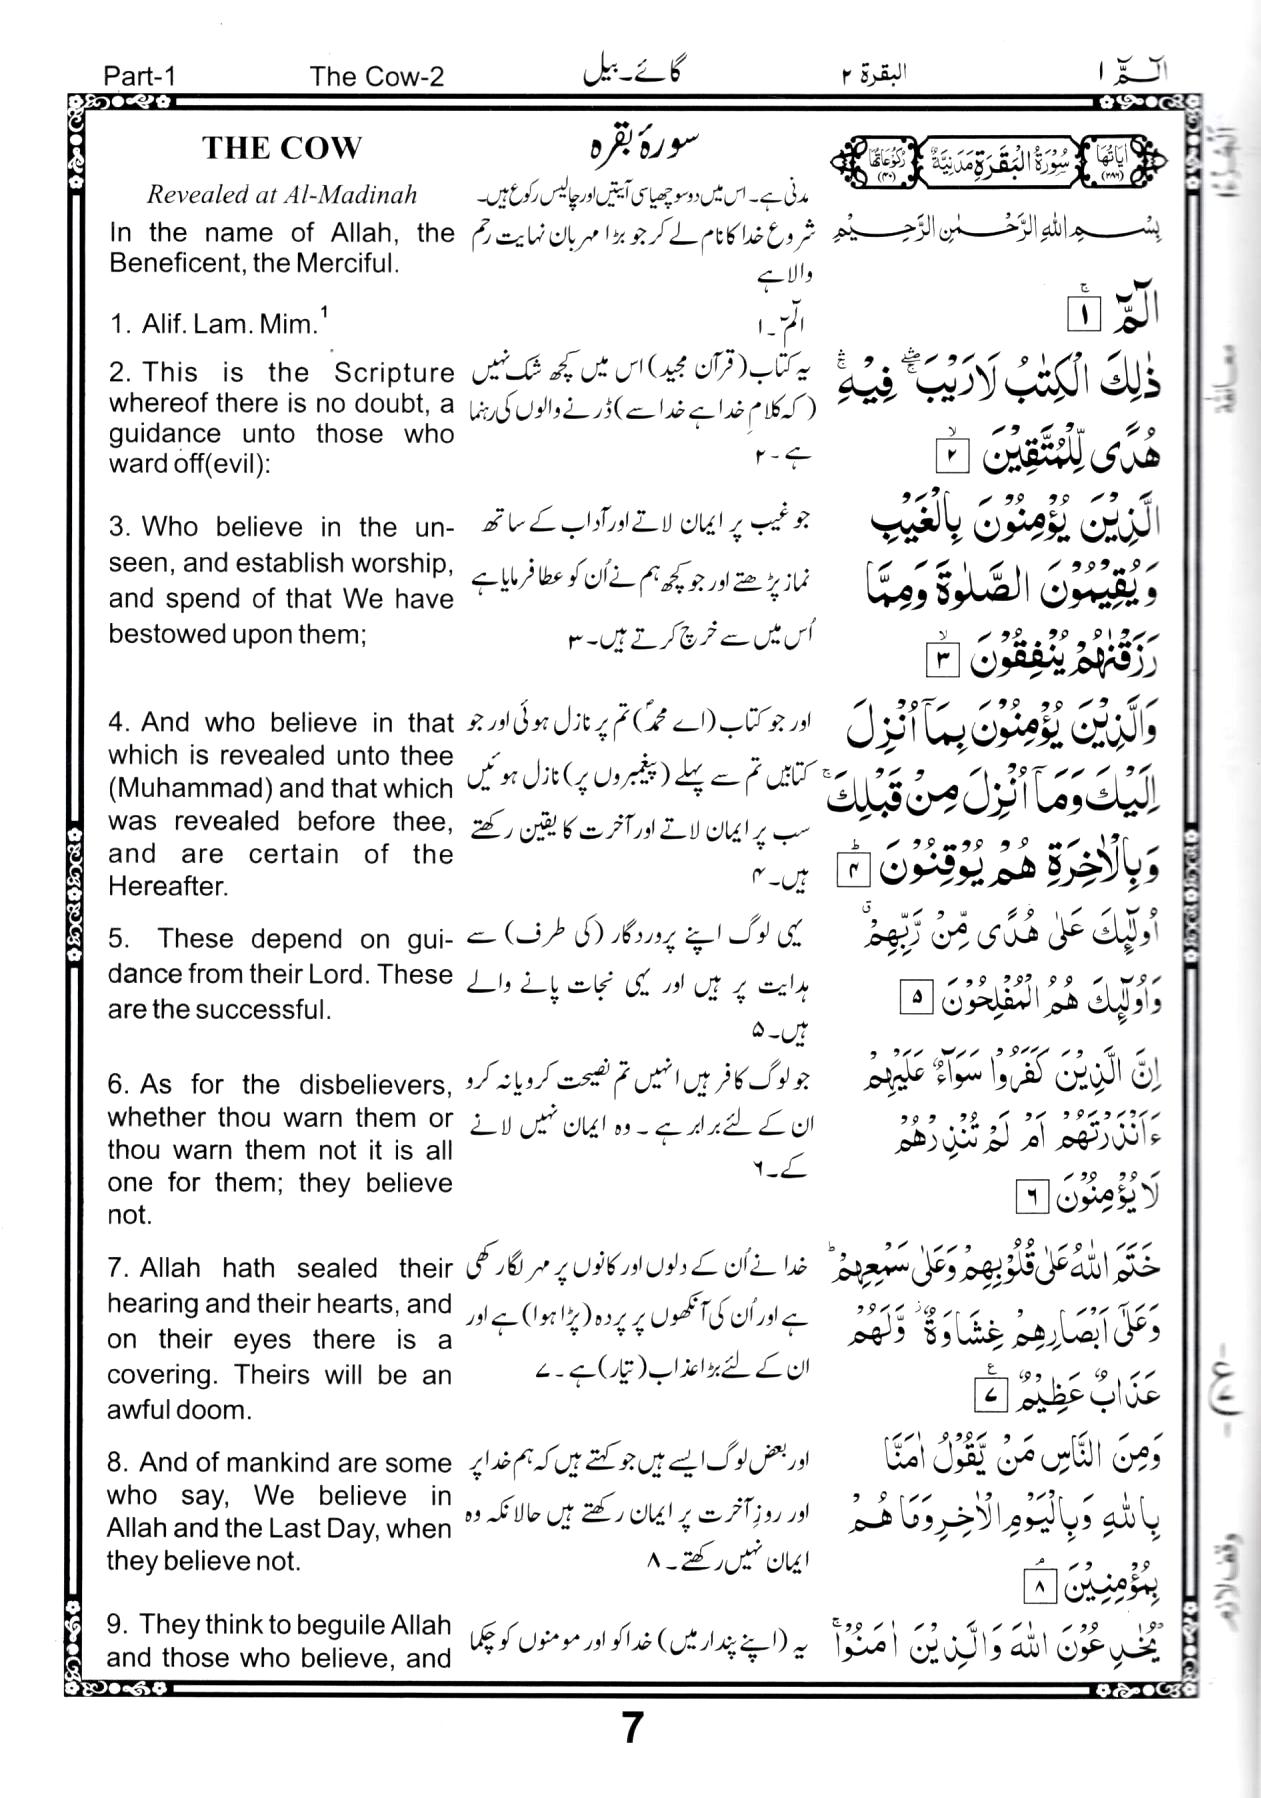 Part-1
The Cow-2
گائے۔بیل
البقرة ۲
الٓـمّٓ ۱
THE COW
Revealed at Al-Madinah
In the name of Allah, the
Beneficent, the Merciful.
1. Alif. Lam. Mim.¹
2. This is the Scripture
whereof there is no doubt, a
guidance unto those who
ward off(evil):
3. Who believe in the un-
seen, and establish worship,
and spend of that We have
bestowed upon them;
4. And who believe in that
which is revealed unto thee
(Muhammad) and that which
was revealed before thee,
and are certain of the
Hereafter.
5. These depend on gui-
dance from their Lord. These
are the successful.
6. As for the disbelievers,
whether thou warn them or
thou warn them not it is all
one for them; they believe
not.
7. Allah hath sealed their
hearing and their hearts, and
on their eyes there is a
covering. Theirs will be an
awful doom.
8. And of mankind are some
who say, We believe in
Allah and the Last Day, when
they believe not.
9. They think to beguile Allah
and those who believe, and
سورۂ بقرہ
مدنی ہے۔ اس میں دو سو چھیاسی آیتیں اور چالیس رکوع ہیں۔
شروع خدا کا نام لے کر جو بڑا مہربان نہایت رحم
والا ہے
الٓمّٓ ۔۱
یہ کتاب (قرآن مجید) اس میں کچھ شک نہیں
(کہ کلامِ خدا ہے خدا سے) ڈرنے والوں کی رہنما
ہے ۔۲
جو غیب پر ایمان لاتے اور آداب کے ساتھ
نماز پڑھتے اور جو کچھ ہم نے اُن کو عطا فرمایا ہے
اُس میں سے خرچ کرتے ہیں۔۳
اور جو کتاب (اے محمدؐ) تم پر نازل ہوئی اور جو
کتابیں تم سے پہلے (پیغمبروں پر) نازل ہوئیں
سب پر ایمان لاتے اور آخرت کا یقین رکھتے
ہیں۔۴
یہی لوگ اپنے پروردگار (کی طرف) سے
ہدایت پر ہیں اور یہی نجات پانے والے
ہیں۔۵
جو لوگ کافر ہیں انہیں تم نصیحت کرو یا نہ کرو
ان کے لئے برابر ہے ۔ وہ ایمان نہیں لانے
کے۔۶
خدا نے اُن کے دلوں اور کانوں پر مہر لگا رکھی
ہے اور اُن کی آنکھوں پر پردہ (پڑا ہوا) ہے اور
ان کے لئے بڑا عذاب (تیار) ہے ۔۷
اور بعض لوگ ایسے ہیں جو کہتے ہیں کہ ہم خدا پر
اور روزِ آخرت پر ایمان رکھتے ہیں حالانکہ وہ
ایمان نہیں رکھتے ۔۸
یہ (اپنے پندار میں) خدا کو اور مومنوں کو چکما
اٰیَاتُهَا (۲۸۶) سُوْرَةُ الْبَقَرَةِ مَدَنِیَّةٌ رُكُوْعَاتُهَا (۴۰)
بِسْمِ اللهِ الرَّحْمٰنِ الرَّحِیْمِ
الٓمّٓ ۚ ۱
ذٰلِكَ الْكِتٰبُ لَا رَیْبَ ۛۖ فِیْهِ ۛۚ
هُدًی لِّلْمُتَّقِیْنَ ۙ ۲
الَّذِیْنَ یُؤْمِنُوْنَ بِالْغَیْبِ
وَیُقِیْمُوْنَ الصَّلٰوةَ وَمِمَّا
رَزَقْنٰهُمْ یُنْفِقُوْنَ ۙ ۳
وَالَّذِیْنَ یُؤْمِنُوْنَ بِمَاۤ اُنْزِلَ
اِلَیْكَ وَمَاۤ اُنْزِلَ مِنْ قَبْلِكَ ۚ
وَبِالْاٰخِرَةِ هُمْ یُوْقِنُوْنَ ؕ ۴
اُولٰٓئِكَ عَلٰی هُدًی مِّنْ رَّبِّهِمْ ۗ
وَاُولٰٓئِكَ هُمُ الْمُفْلِحُوْنَ ۵
اِنَّ الَّذِیْنَ كَفَرُوْا سَوَآءٌ عَلَیْهِمْ
ءَاَنْذَرْتَهُمْ اَمْ لَمْ تُنْذِرْهُمْ
لَا یُؤْمِنُوْنَ ۶
خَتَمَ اللهُ عَلٰی قُلُوْبِهِمْ وَعَلٰی سَمْعِهِمْ ؕ
وَعَلٰۤی اَبْصَارِهِمْ غِشَاوَةٌ ۫ وَّلَهُمْ
عَذَابٌ عَظِیْمٌ ۷
وَمِنَ النَّاسِ مَنْ یَّقُوْلُ اٰمَنَّا
بِاللهِ وَبِالْیَوْمِ الْاٰخِرِ وَمَا هُمْ
بِمُؤْمِنِیْنَ ۘ ۸
یُخٰدِعُوْنَ اللهَ وَالَّذِیْنَ اٰمَنُوْا ۚ
معانقة
وقف لازم
7